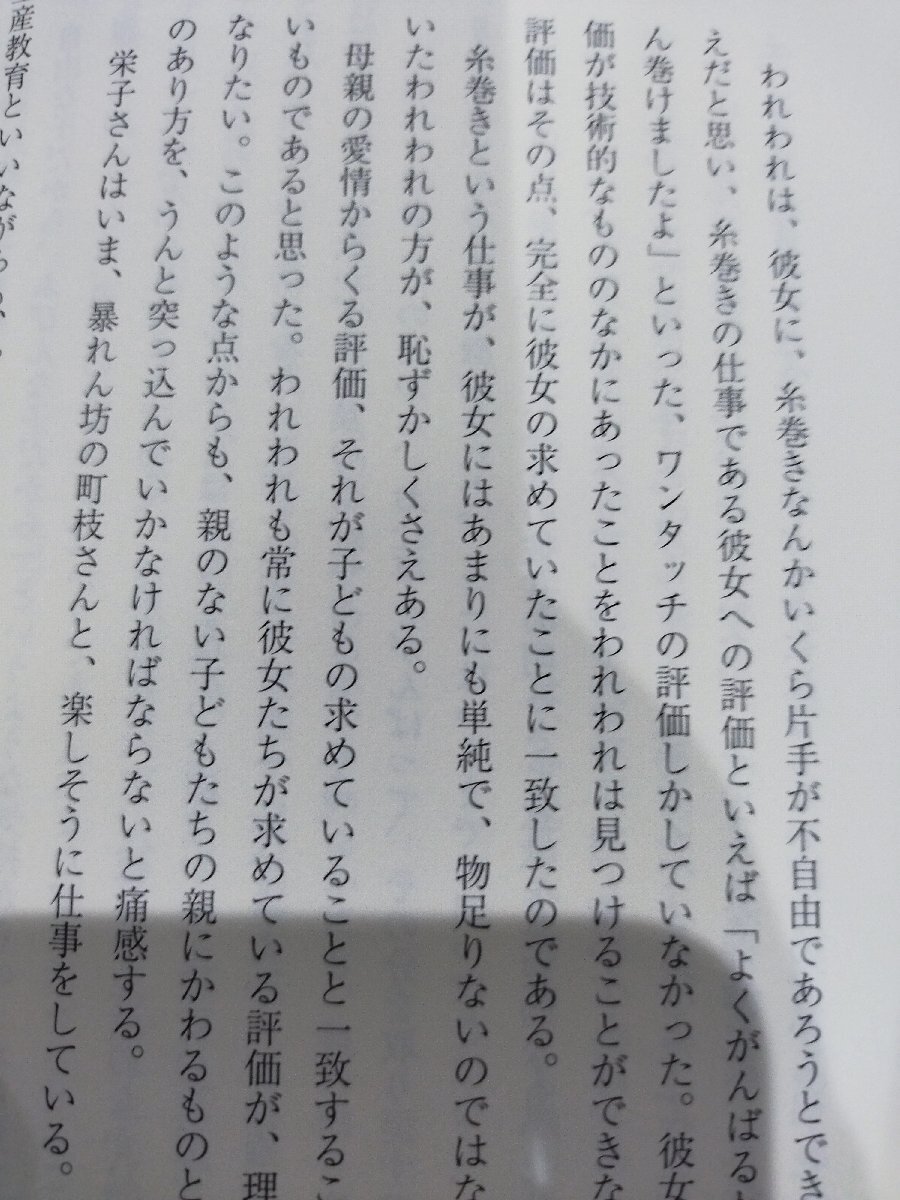 われわれは、彼女に、糸巻きなんかいくら片手が不自由であろうとでき
えだと思い、糸巻きの仕事である彼女への評価といえば「よくがんばる
ん巻けましたよ」といった、ワンタッチの評価しかしていなかった。彼女
価が技術的なもののなかにあったことをわれわれは見つけることができな
評価はその点、完全に彼女の求めていたことに一致したのである。
糸巻きという仕事が、彼女にはあまりにも単純で、物足りないのではな
いたわれわれの方が、恥ずかしくさえある。
母親の愛情からくる評価、それが子どもの求めていることと一致するこ
いものであると思った。われわれも常に彼女たちが求めている評価が、理
なりたい。このような点からも、親のない子どもたちの親にかわるものと
のあり方を、うんと突っ込んでいかなければならないと痛感する。
栄子さんはいま、暴れん坊の町枝さんと、楽しそうに仕事をしている。
産教育といいながら